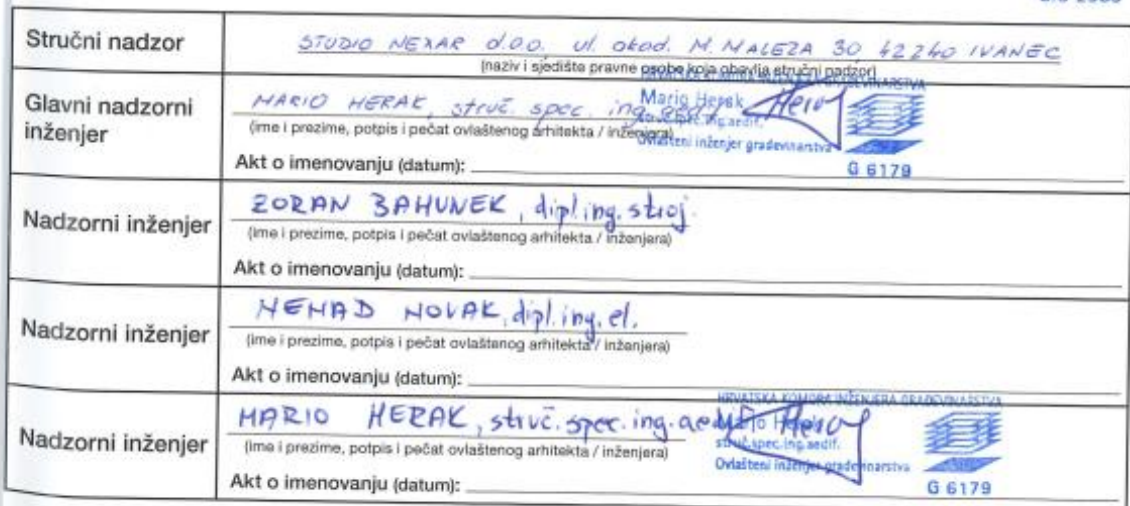 Stručni nadzor
STUDIO NEXAR d.o.o. ul. akad. M. MALEZA 30, 42240 IVANEC
(naziv i sjedište pravne osobe koja obavlja stručni nadzor)
HRVATSKA KOMORA INŽENJERA GRAĐEVINARSTVA
Glavni nadzorni inženjer
MARIO HERAK, struč. spec. ing. aedif.
(ime i prezime, potpis i pečat ovlaštenog arhitekta / inženjera)
Mario Herak
struč.spec.ing.aedif.
Ovlašteni inženjer građevinarstva
G 6179
Akt o imenovanju (datum):
Nadzorni inženjer
ZORAN BAHUNEK, dipl.ing.stroj.
(ime i prezime, potpis i pečat ovlaštenog arhitekta / inženjera)
Akt o imenovanju (datum):
Nadzorni inženjer
NENAD NOVAK, dipl.ing.el.
(ime i prezime, potpis i pečat ovlaštenog arhitekta / inženjera)
Akt o imenovanju (datum):
Nadzorni inženjer
MARIO HERAK, struč.spec.ing.aedif.
(ime i prezime, potpis i pečat ovlaštenog arhitekta / inženjera)
HRVATSKA KOMORA INŽENJERA GRAĐEVINARSTVA
Mario Herak
struč.spec.ing.aedif.
Ovlašteni inženjer građevinarstva
G 6179
Akt o imenovanju (datum):